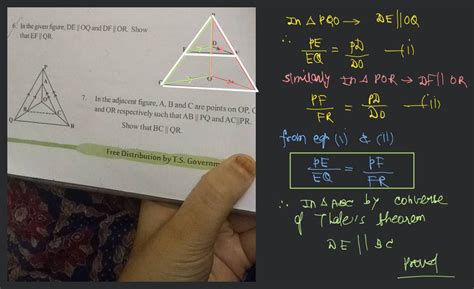 6. In the given figure, DE || OQ and DF || OR. Show
that EF || QR.
7. In the adjacent figure, A, B and C are points on OP,
and OR respectively such that AB || PQ and AC||PR.
Show that BC || QR.
Free Distribution by T.S. Governm
P
Q
R
D
O
In △ PQO → DE || OQ
∴ PE/EQ = PD/DO —(i)
similarly In △ POR → DF || OR
PF/FR = PD/DO —(ii)
from eqn (i) & (ii)
PE/EQ = PF/FR
∴ In △ ABC by converse
of Thale's theorem
DE || BC
Proved